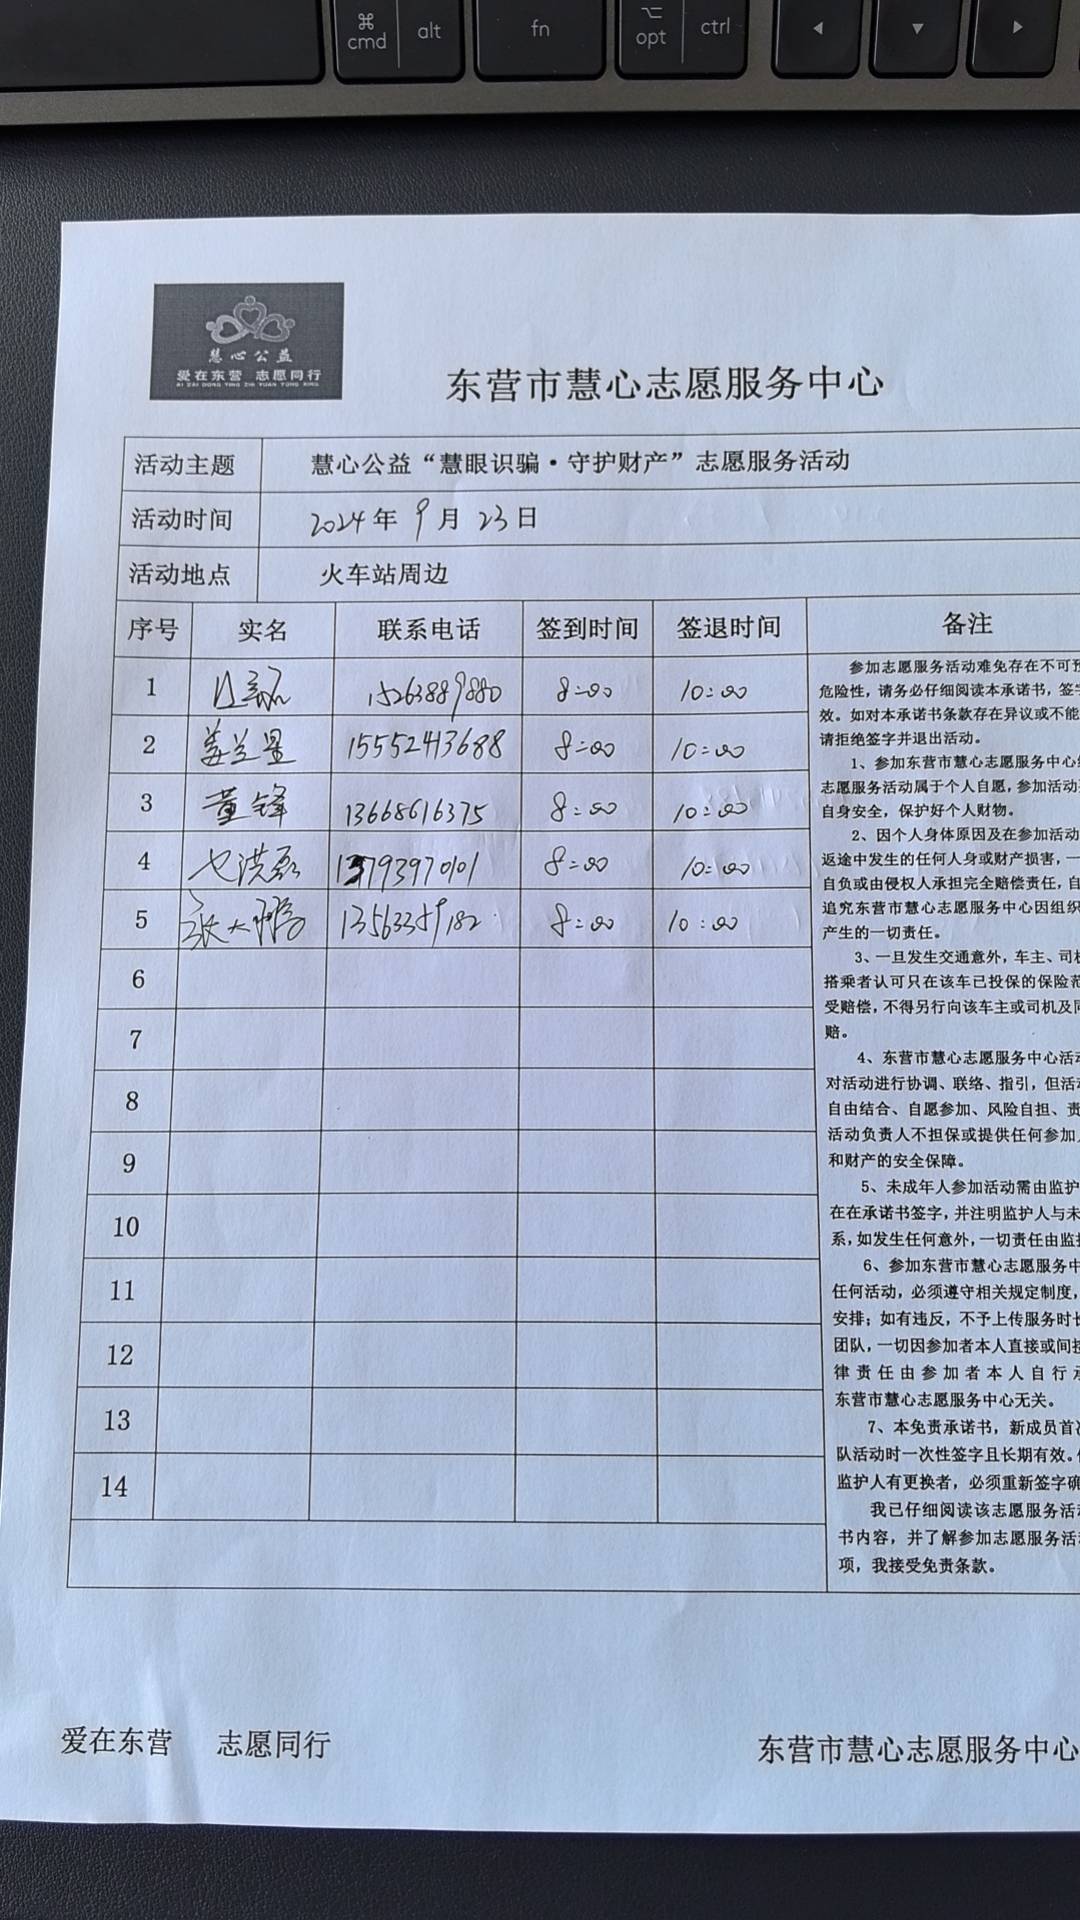 ⌘
cmd
alt
fn
⌥
opt
ctrl
慧心公益
爱在东营 志愿同行
AI ZAI DONG YING ZHI YUAN TONG XING
东营市慧心志愿服务中心
活动主题 慧心公益“慧眼识骗·守护财产”志愿服务活动
活动时间 2024年 9月 23日
活动地点 火车站周边
序号 实名 联系电话 签到时间 签退时间 备注
1 15263889880 8:00 10:00
2 姜兰昱 15552413688 8:00 10:00
3 董锋 13668616375 8:00 10:00
4 洪磊 13793970101 8:00 10:00
5 张大鹏 13563359182 8:00 10:00
6
7
8
9
10
11
12
13
14
参加志愿服务活动难免存在不可预
危险性，请务必仔细阅读本承诺书，签字
效。如对本承诺书条款存在异议或不能
请拒绝签字并退出活动。
1、参加东营市慧心志愿服务中心组
志愿服务活动属于个人自愿，参加活动
自身安全，保护好个人财物。
2、因个人身体原因及在参加活动
返途中发生的任何人身或财产损害，一
自负或由侵权人承担完全赔偿责任，自
追究东营市慧心志愿服务中心因组织
产生的一切责任。
3、一旦发生交通意外，车主、司机
搭乘者认可只在该车已投保的保险范
受赔偿，不得另行向该车主或司机及同
赔。
4、东营市慧心志愿服务中心活动
对活动进行协调、联络、指引，但活动
自由结合、自愿参加、风险自担、责
活动负责人不担保或提供任何参加人
和财产的安全保障。
5、未成年人参加活动需由监护
在在承诺书签字，并注明监护人与未
系，如发生任何意外，一切责任由监护
6、参加东营市慧心志愿服务中
任何活动，必须遵守相关规定制度，
安排；如有违反，不予上传服务时长
团队，一切因参加者本人直接或间接
律责任由参加者本人自行承
东营市慧心志愿服务中心无关。
7、本免责承诺书，新成员首次
队活动时一次性签字且长期有效。
监护人有更换者，必须重新签字确
我已仔细阅读该志愿服务活动
书内容，并了解参加志愿服务活动
项，我接受免责条款。
爱在东营 志愿同行
东营市慧心志愿服务中心